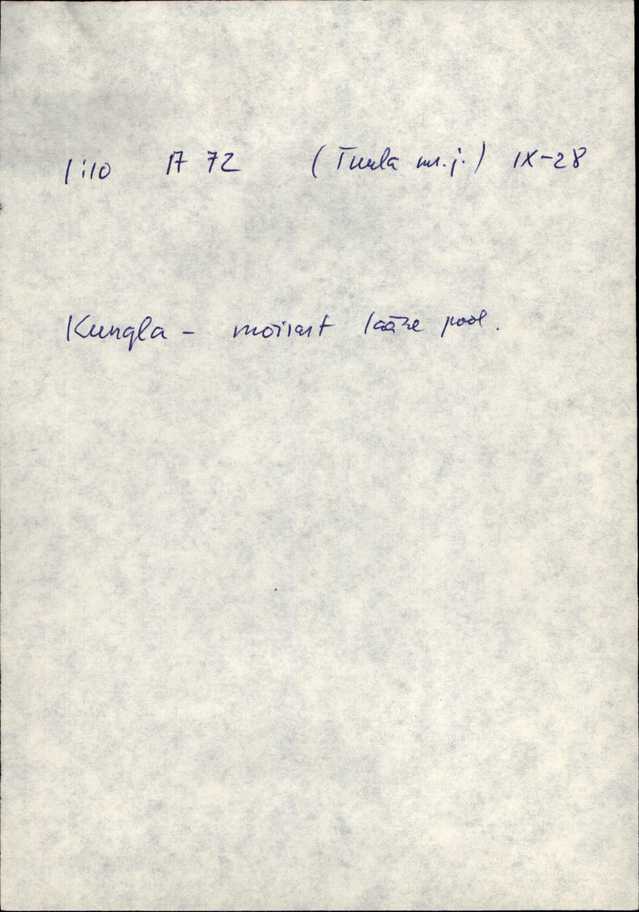 1:10 17 72 (Tuula m.j.) IX-28
Kungla - moisast lääne pool.